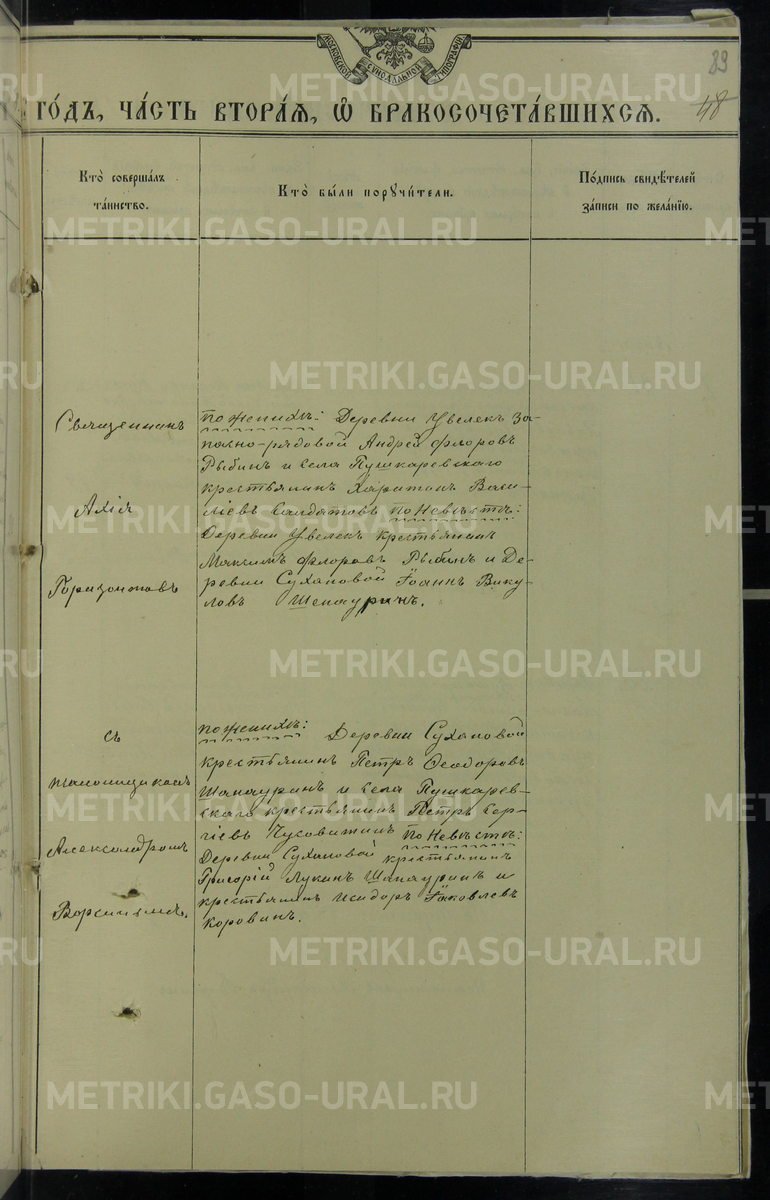 МОСКОВСКОЙ СѴНОДАЛЬНОЙ ТИПОГРАФІИ
89
48
ГО́ДЪ, ЧА́СТЬ ВТОРА́Я, Ѽ БРАКОСОЧЕТА́ВШИХСЯ.
Кто̀ соверша́лъ
та́инство.
Кто̀ бы́ли порꙋчи́тели.
По́дпись свидѣ́телей
за́писи по жела́нїю.
Священникъ
Ахія
Горизонтовъ
по женихѣ: Деревни Увелекъ за-
пасно-рядовой Андрей Флоровъ
Рыбинъ и села Пушкаревскаго
крестьянинъ Харитонъ Васи-
ліевъ Салдатовъ по Невѣстѣ:
Деревни Увелекъ крестьянинъ
Максимъ Флоровъ Рыбинъ и Де-
ревни Сухановой Іоаннъ Вику-
ловъ Шепауринъ.
съ
псаломщикомъ
Александромъ
по женихѣ: Деревни Сухановой
крестьянинъ Петръ Ѳеодоровъ
Шапауринъ и села Пушкарев-
скаго крестьянинъ Петръ Сер-
гіевъ Чусовитинъ по Невѣстѣ:
Деревни Сухановой крестьянинъ
Григорій Лукинъ Шапауринъ и
крестьянинъ Исидоръ Іаковлевъ
Коровинъ.
METRIKI.GASO-URAL.RU